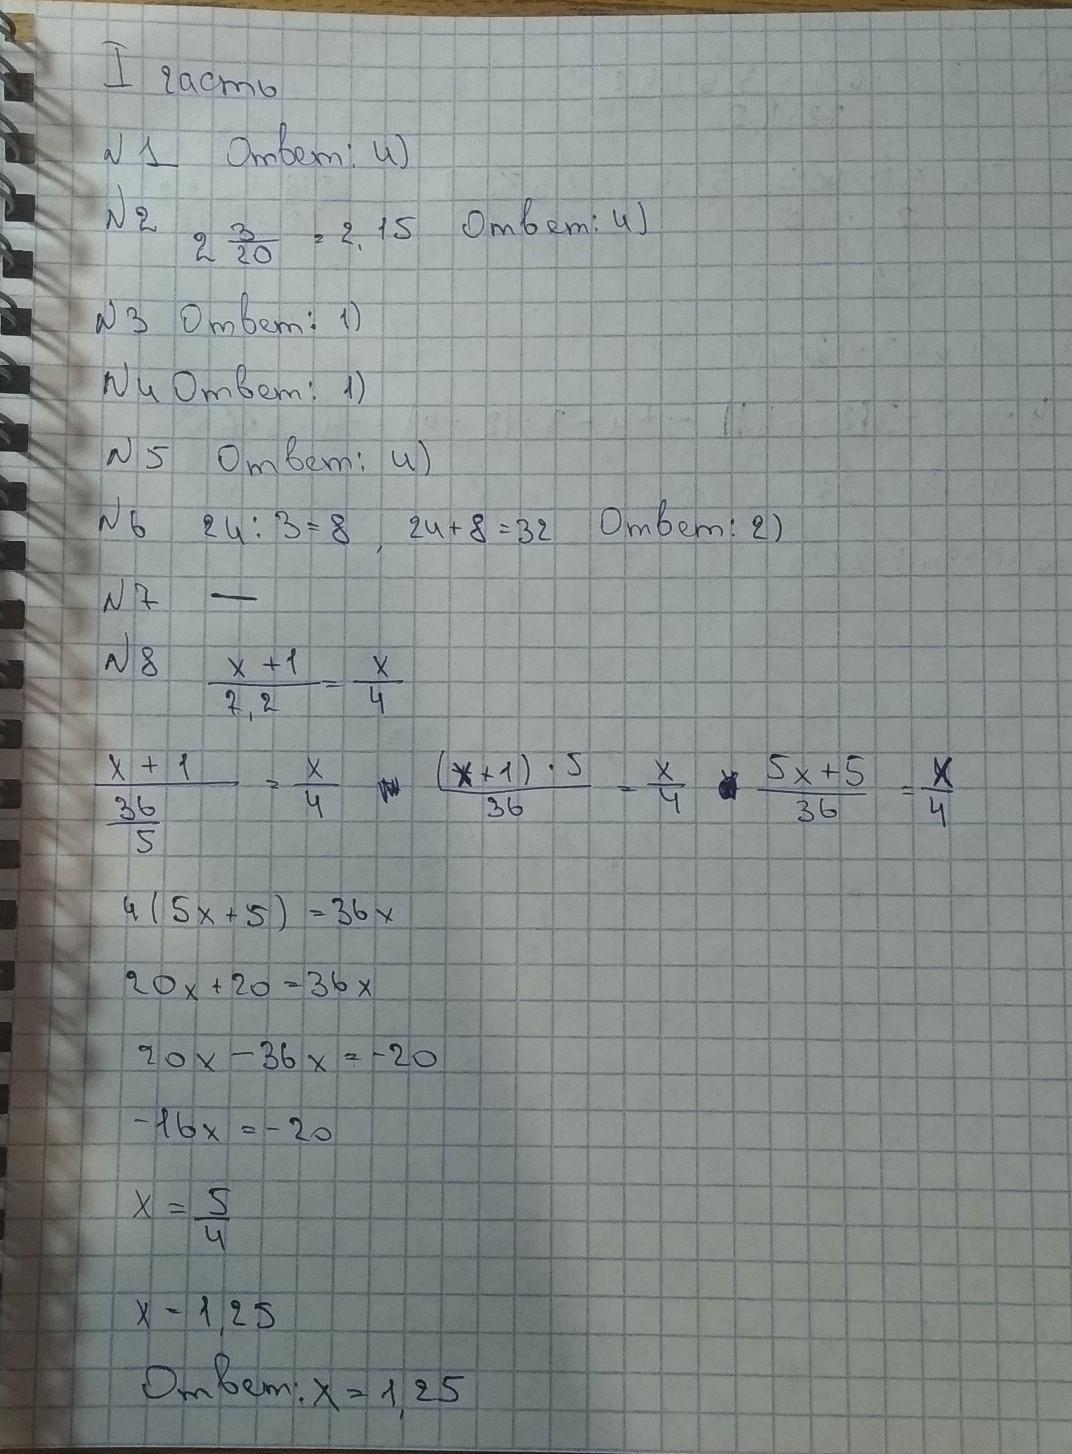 I часть
№1 Ответ: 4)
№2 2 3/20 = 2,15 Ответ: 4)
№3 Ответ: 1)
№4 Ответ: 1)
№5 Ответ: 4)
№6 24 : 3 = 8, 24 + 8 = 32 Ответ: 2)
№7 —
№8 (x + 1)/7,2 = x/4
(x + 1)/(36/5) = x/4 ((x + 1) · 5)/36 = x/4 (5x + 5)/36 = x/4
4(5x + 5) = 36x
20x + 20 = 36x
20x - 36x = -20
-16x = -20
x = 5/4
x = 1,25
Ответ: x = 1,25